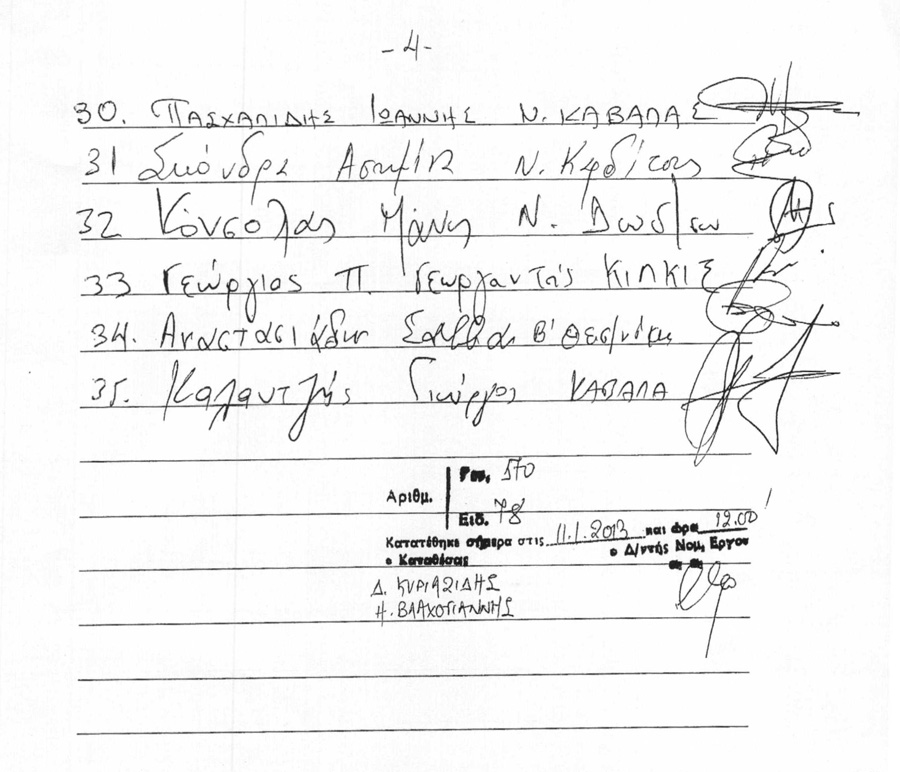 -4-
30. ΠΑΣΧΑΛΙΔΗΣ ΙΩΑΝΝΗΣ Ν. ΚΑΒΑΛΑΣ
31 Σκόνδρα Ασημίνα Ν. Καρδίτσας
32 Κόνσολας Μάνος Ν. Δωδ/σου
33 Γεώργιος Π. Γεωργαντάς ΚΙΛΚΙΣ
34. Αναστασιάδης Σάββας Β' Θεσ/νίκης
35. Καλαντζής Γιώργος ΚΑΒΑΛΑ
Αριθμ.
Γεν. 570
Ειδ. 78
Κατατέθηκε σήμερα στις 11.1.2013 και ώρα 12.00'
ο Καταθέσας ο Δ/ντής Νομ. Εργου
Δ. ΚΥΡΙΑΖΙΔΗΣ
Η. ΒΛΑΧΟΓΙΑΝΝΗΣ